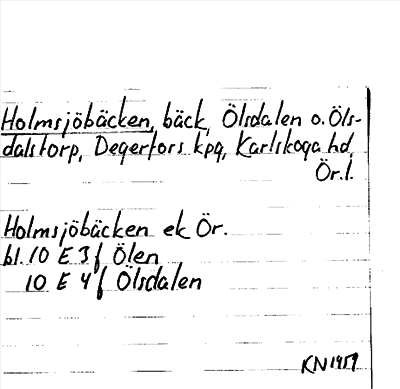 Holmsjöbäcken, bäck, Ölsdalen o. Öls-
dalstorp, Degerfors kpg, Karlskoga hd,
Ör.l.
Holmsjöbäcken ek Ör.
bl. 10 E 3 f Ölen
10 E 4 f Ölsdalen
KN 1959